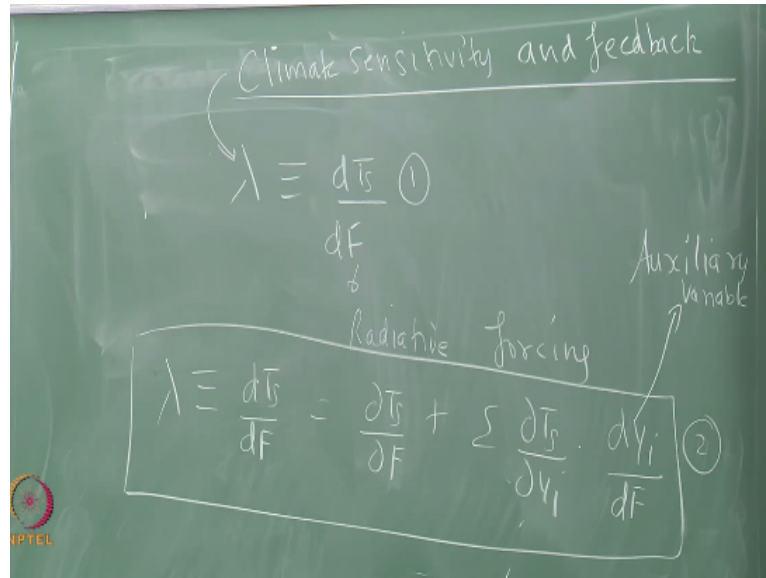 Climate Sensitivity and feedback
λ ≡ dTs/dF ①
Radiative forcing
Auxiliary
Variable
λ ≡ dTs/dF = ∂Ts/∂F + Σ ∂Ts/∂yi · dyi/dF ②
NPTEL